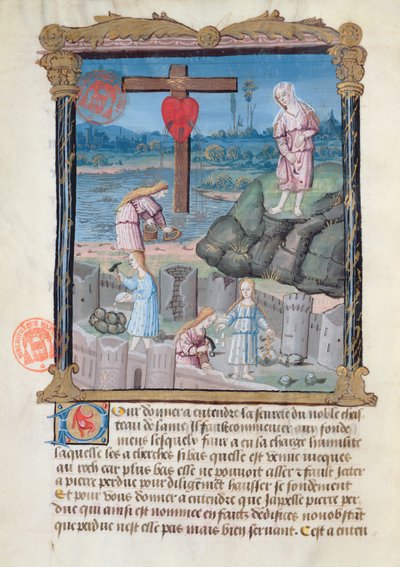 Pour donner a entendre la seurete du noble chas
teau de sante Il fault commencer aux fonde
mens lesquelz faire a eu la charge humilite
laquelle les a cherches si bas quelle est venue jucques
au roch car plus bas elle ne pouvoit aller et fault jecter
a pierre perdue pour diligemment haulser ce fondement
Et pour vous donner a entendre que Jappelle pierre per
due qui ainsi est nommee en faictz dedifices nonobstant
que perdue nest elle pas mais bien servant. Cest a enten
BIBLIOTHEQUE